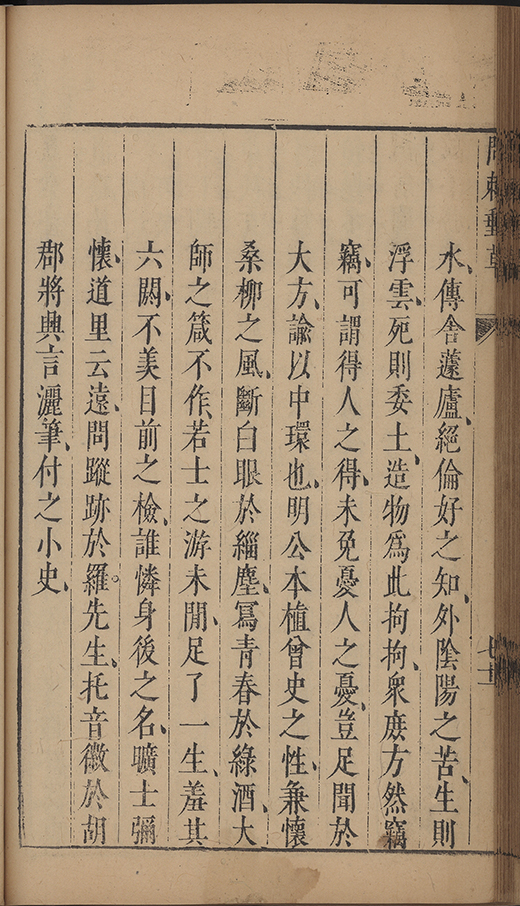 問棘郵草
水、傳舍蘧廬、絕倫好之知、外隂陽之苦、生則
浮雲、死則委土、造物爲此拘拘、衆庶方然竊
竊、可謂得人之得、未免憂人之憂、豈足聞於
大方、諭以中環也、明公本植曾史之性、兼懷
桑柳之風、斷白眼於緇塵、寫青春於綠酒、大
師之箴不作、若士之游未閒、足了一生、羞其
六闕、不美目前之檢、誰憐身後之名、曠士彌
懷、道里云遠、問蹤跡於羅。先生、托音徽於胡
郡將興言灑筆、付之小史、